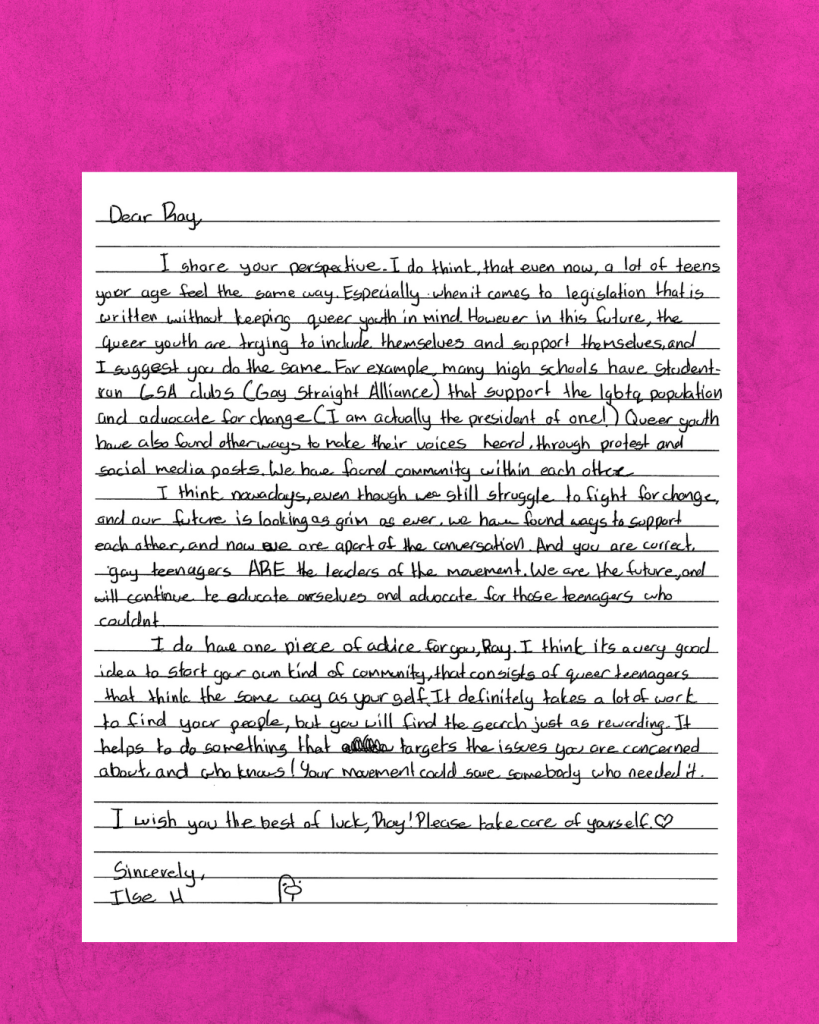 Dear Ray,
I share your perspective. I do think, that even now, a lot of teens
your age feel the same way. Especially when it comes to legislation that is
written without keeping queer youth in mind. However in this future, the
queer youth are trying to include themselves and support themselves, and
I suggest you do the same. For example, many high schools have student-
run GSA clubs (Gay Straight Alliance) that support the lgbtq population
and advocate for change (I am actually the president of one!) Queer youth
have also found other ways to make their voices heard, through protest and
social media posts. We have found community within each other
I think nowadays, even though we still struggle to fight for change,
and our future is looking as grim as ever, we have found ways to support
each other, and now we are apart of the conversation. And you are correct,
gay teenagers ARE the leaders of the movement. We are the future, and
will continue to educate ourselves and advocate for those teenagers who
couldnt
I do have one piece of advice for you, Ray. I think its a very good
idea to start your own kind of community, that consists of queer teenagers
that think the same way as your self. It definitely takes a lot of work
to find your people, but you will find the search just as rewarding. It
helps to do something that targets the issues you are concerned
about, and who knows! Your movement could save somebody who needed it.
I wish you the best of luck, Ray! Please take care of yourself. ♡
Sincerely,
Ilse H